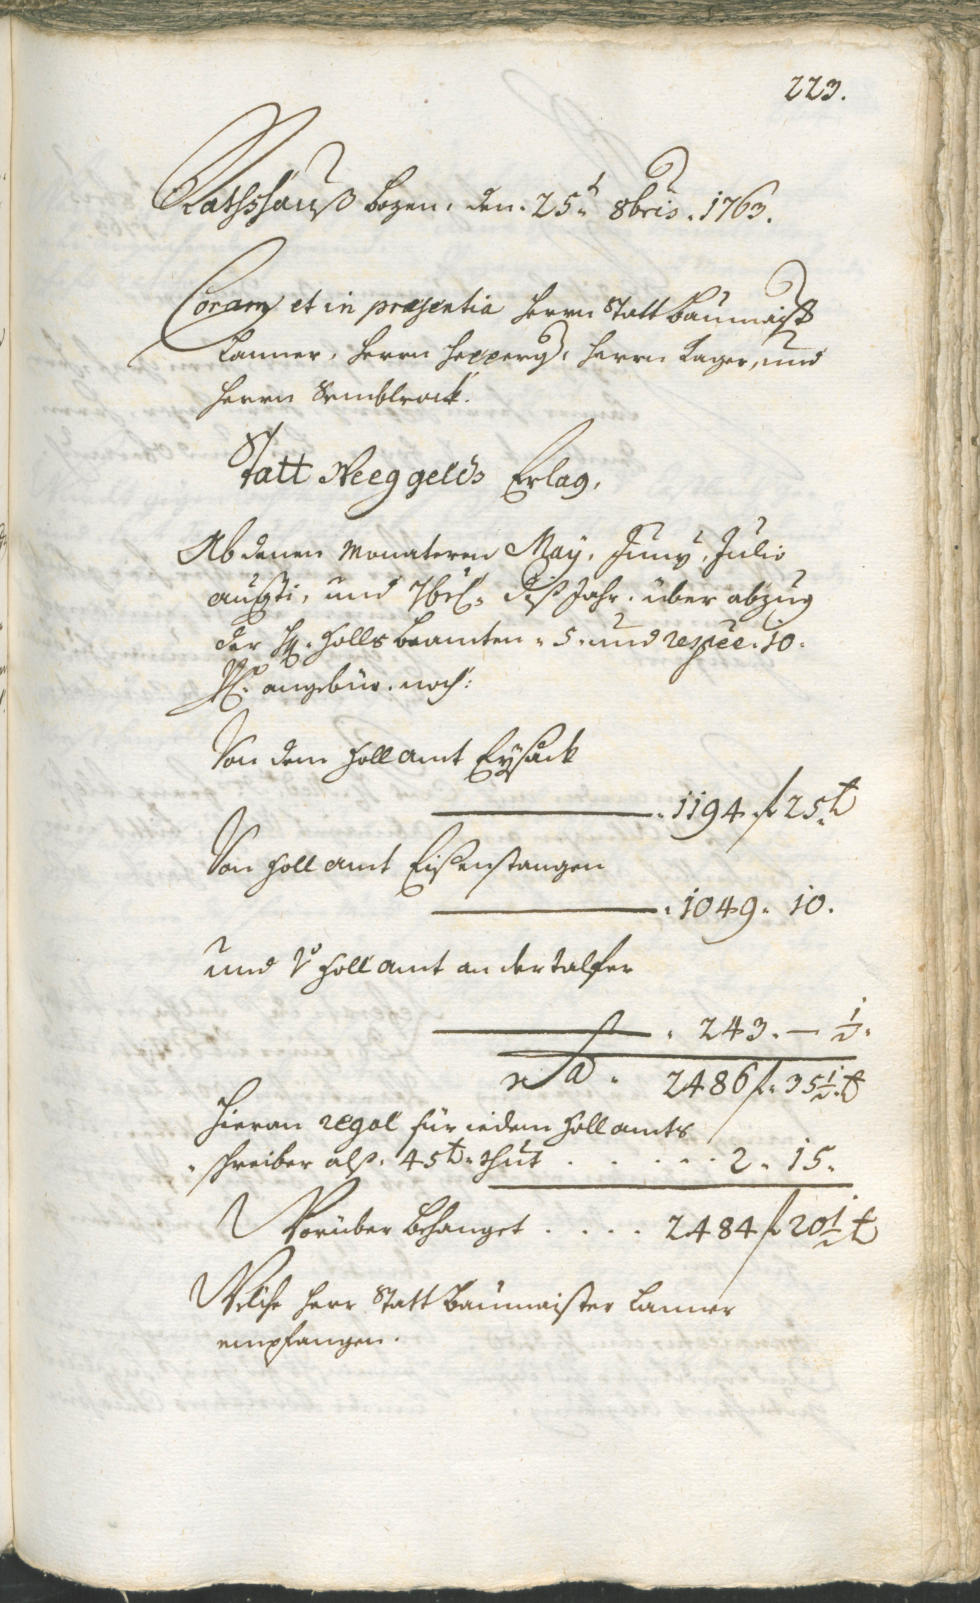 223.
Rathshauß Bozen, den. 25t 8bris. 1763.
Coram et in præsentia Herrn Statt Baumaist
Lanner, Herrn Hepperg, Herrn Lager, und
Herrn Semblrock.
Statt Weeggelds Erlag,
Ab denen Monateren May, Juny, Julio
augsti, und 7bris diß Jahr. über abzug
der HH. Zollsbeamten 5. und respee. 10.
angebür. noch:
Von dem Zoll amt Eysack
1194 f 25 x
Von Zoll amt Eisenstangen
1049. 10.
und Zoll amt an der Talfer
243. — ½.
2486 f. 35½ x
Hieran regal für iedem Zoll amts
schreiber alß. 45 x. thut . . . . . 2. 15.
Vorüber behanget . . . . 2484 f 20½ x
Welche Herr Statt Baumaister Lanner
empfangen.